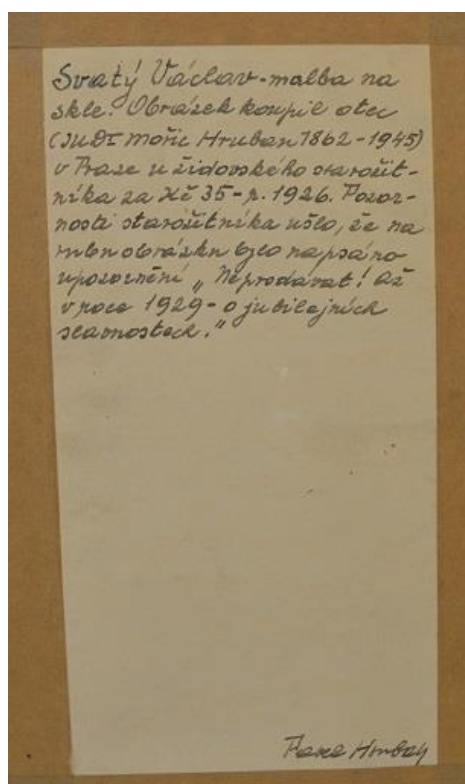 Svatý Václav - malba na
skle. Obrázek koupil otec
(JUDr Mořic Hruban 1862-1945)
v Praze u židovského starožit-
níka za Kč 35- r. 1926. Pozor-
nosti starožitníka ušlo, že na
rubu obrázku bylo napsáno
upozornění „Neprodávat! Až
v roce 1929 - o jubilejních
slavnostech."
Hruban